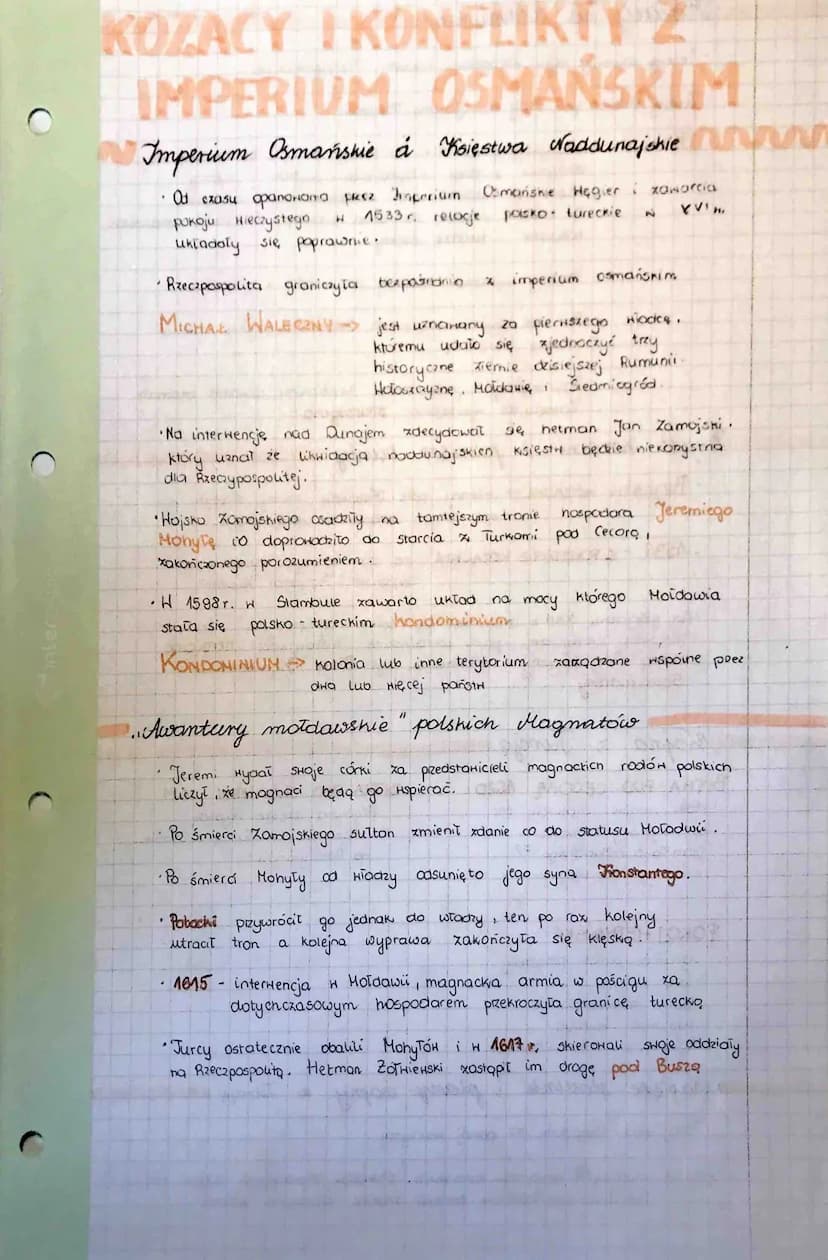 KOZACY I KONFLIKTY Z
IMPERIUM OSMAŃSKIM
Imperium Osmańskie a Księstwa Naddunajskie
• Od czasu opanowana przez Imperium Osmańskie Węgier i zawarcia
pokoju wieczystego w 1533 r. relacje polsko-tureckie w XVI w.
układały się poprawnie.
• Rzeczpospolita graniczyła bezpośrednio z imperium osmańskim
MICHAŁ WALECZNY → jest uznawany za pierwszego władcę,
któremu udało się zjednoczyć trzy
historyczne ziemie dzisiejszej Rumunii
Wołoszczyznę, Mołdawię i Siedmiogród.
• Na interwencję nad Dunajem zdecydował się hetman Jan Zamojski,
który uznał że likwidacja naddunajskich księstw będzie niekorzystna
dla Rzeczypospolitej.
• Wojska Zamojskiego osadziły na tamtejszym tronie hospodara Jeremiego
Mohyłę co doprowadziło do starcia z Turkami pod Cecorą,
zakończonego porozumieniem.
• W 1598 r. w Stambule zawarto układ na mocy którego Mołdawia
stała się polsko-tureckim kondominium
KONDOMINIUM → kolonia lub inne terytorium zarządzane wspólne przez
dwa lub więcej państw
„Awantury mołdawskie" polskich Magnatów
• Jeremi wydał swoje córki za przedstawicieli magnackich rodów polskich
liczył, że magnaci będą go wspierać.
• Po śmierci Zamojskiego sułtan zmienił zdanie co do statusu Mołodwii.
• Po śmierci Mohyły od władzy odsunięto jego syna Konstantego.
• Potocki przywrócił go jednak do władzy, ten po raz kolejny
utracił tron a kolejna wyprawa zakończyła się klęską.
• 1615 - interwencja w Mołdawii, magnacka armia w pościgu za
dotychczasowym hospodarem przekroczyła granicę turecką
• Turcy ostatecznie obalili Mohyłów i w 1617 r. skierowali swoje oddziały
na Rzeczpospolitą. Hetman Żółkiewski zastąpił im drogę pod Buszą